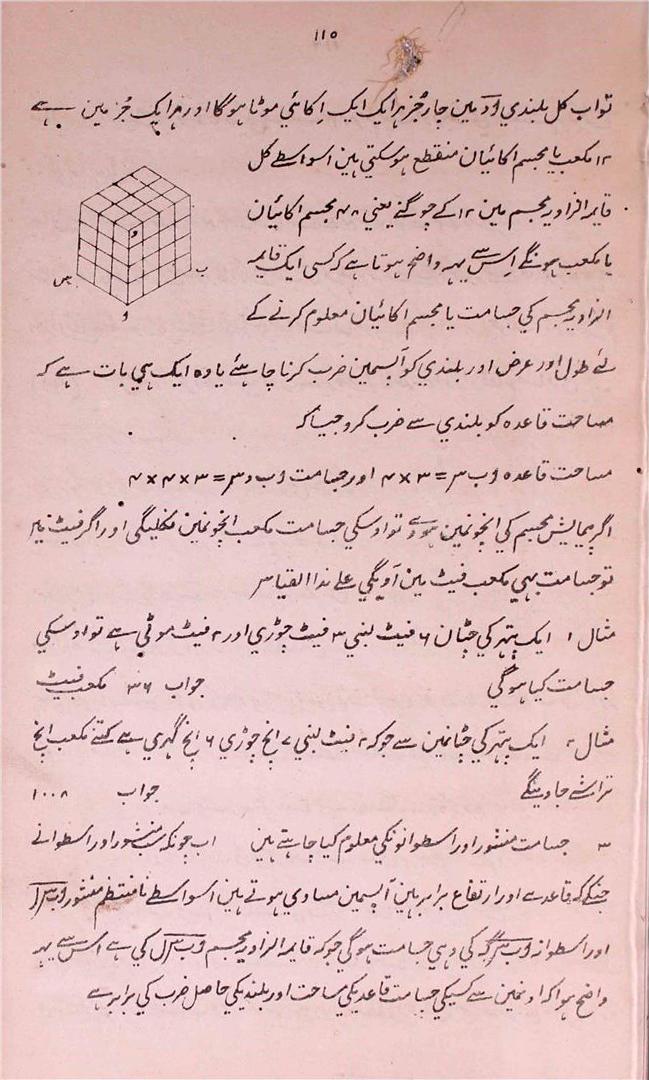 ۱۱۵
تو اب کل بلندي وٗ د مین چار جُز ہر ایک ایک اِکائي موٹا ہوگا اور ہر ایک جُز مین
۱۲ مکعب یا مجسم اکائیان منقطع ہوسکتي ہین اسواسطے کل
قایمہ الزاویہ مجسم مین ۱۲ کے چوگنے یعني ۴۸ مجسم اکائیان
یا مکعب ہونگے اِس سے یہہ واضح ہوتا ہے کہ کسي ایک قایمہ
الزاویہ مجسم کي جسامت یا مجسم اکائیان معلوم کرنے کے
لئے طول اور عرض اور بلندي کو آپسمین ضرب کرنا چاہئے یا وہ ایک ہي بات ہے کہ
مساحت قاعدہ کو بلندي سے ضرب کرو جیسا کہ
مساحت قاعدہ وٗ ب س = ۳ × ۴ اور جسامت وٗ ب د س = ۳ × ۴ × ۴
اگر پیمایش مجسم کي انچونمین ہووے تو اوسکي جسامت مکعب انچونمین نکلیگي اور اگر فیٹ
تو جسامت بہي مکعب فیٹ مین آویگي علے ہذا القیاس
مثال ۱ ایک پتہر کي چٹان ۶ فیٹ لنبي ۳ فیٹ چوڑي اور ۲ فیٹ موٹي ہے تو اوسکي
جسامت کیا ہوگي جواب ۳۶ مکعب فیٹ
مثال ۲ ایک پتہر کي چٹانمین سے جو کہ ۲ فیٹ لنبي ۷ انچ چوڑي ۶ انچ گہري ہے کتنے مکعب انچ
تراشے جاوینگے جواب ۱۰۰۸
۳ جسامت منشور اور اسطوانونکي معلوم کیا چاہتے ہین اب چونکہ سب منشور اور اسطوانے
جنکے کہ قاعدے اور ارتفاع برابر ہین آپسمین مساوي ہوتے ہین اسواسطے نامنتظم منشور
اور اسطوانہ کي وہي جسامت ہوگي جو کہ قایمہ الزاویہ مجسم کي ہے اس سے یہہ
واضح ہوا کہ اونمین سے کسیکي جسامت قاعدیکي مساحت اور بلندیکي حاصل ضرب کي برابر ہے
و
س
ب
وٗ